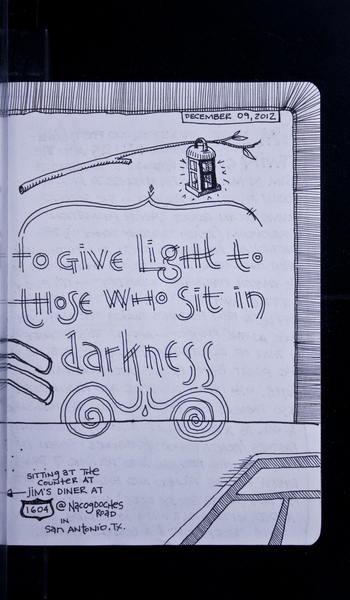 DECEMBER 09, 2012
to GIVE Light to
those WHO Sit in
darkness
SITTING AT THE
COUNTER AT
JIM'S DINER AT
1604 @ NACOGDOCHES
ROAD
IN
SAN ANTONIO, TX.